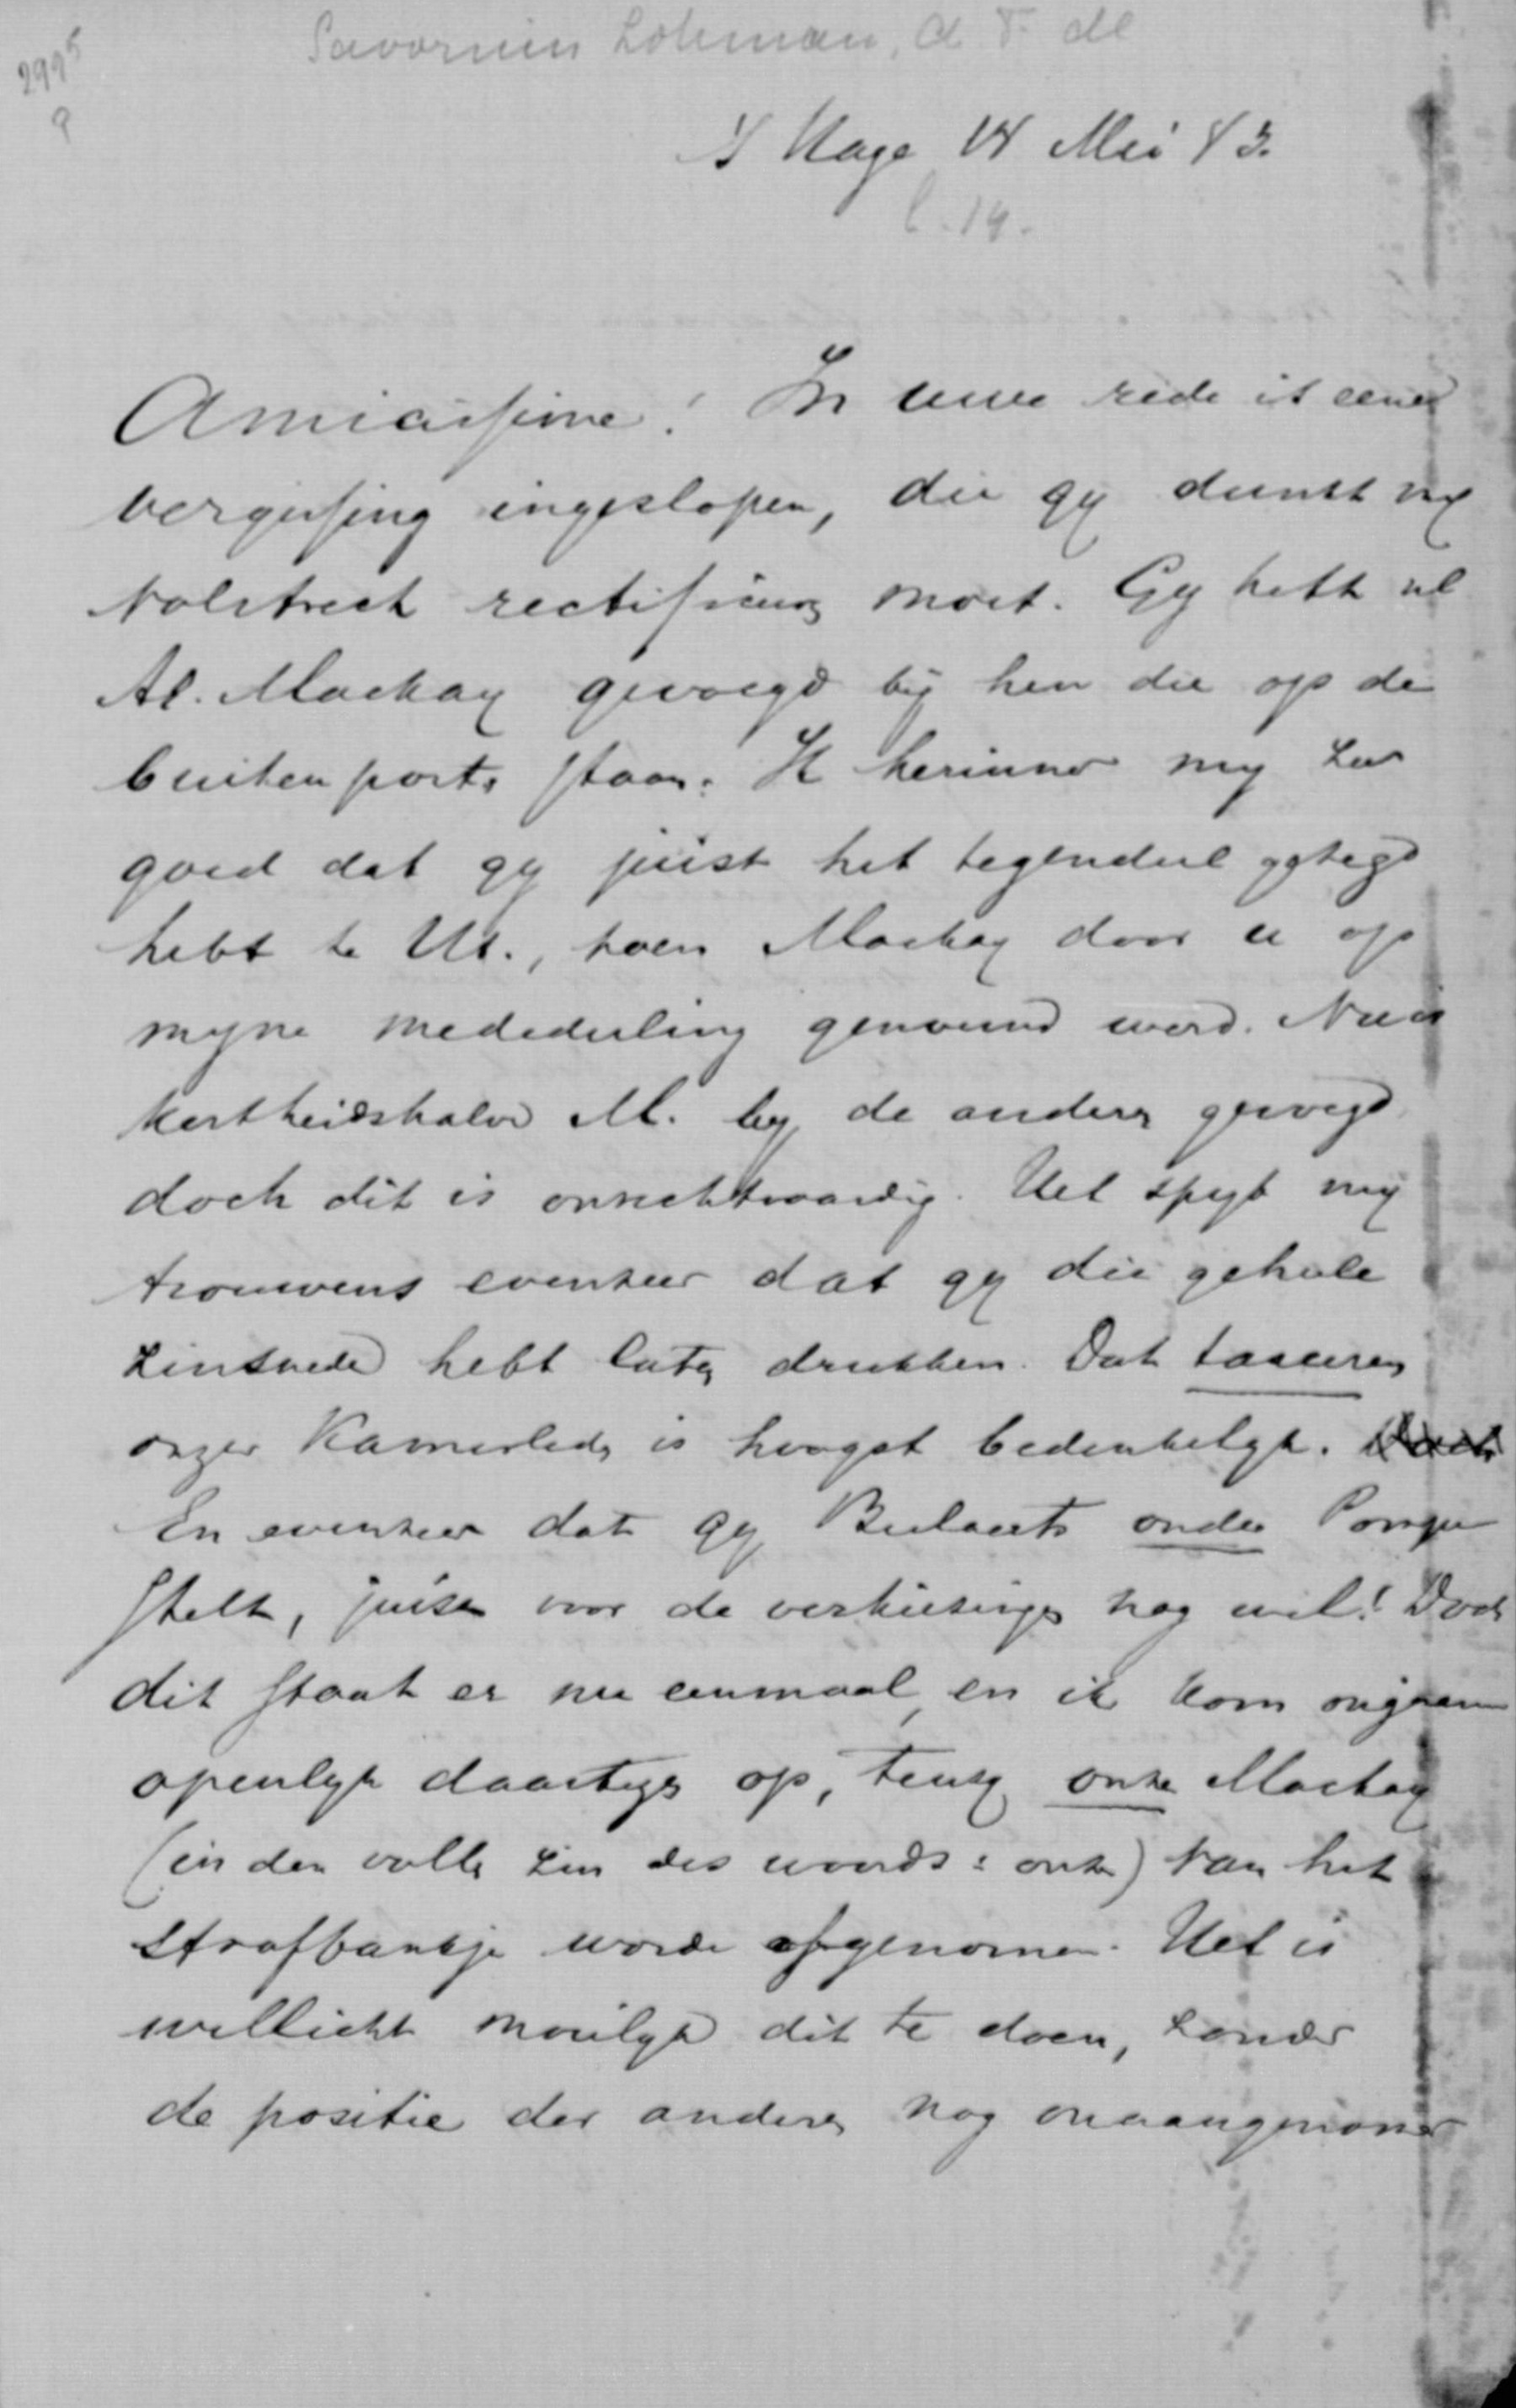 Savornin Lohman, A. F. de
2995
s Hage 14 Mei 83.
b. 14.
Amicissime! In uwe rede is eene
vergissing ingeslopen, die gy dunkt my
volstrekt rectificeeren moet. Gy hebt nl
Ae. Mackay gevoegd by hen die op de
buitenposts staan. Ik herinner my zeer
goed dat gy juist het tegendeel gezegd
hebt te Ut., toen Mackay door u op
myne mededeeling genoemd werd. Nu is
kortheidshalve M. by de anderen gevoegd
doch dit is onrechtvaardig. Het spyt my
trouwens evenzeer dat gy die geheele
zinsnede hebt laten drukken. Dat taxeeren
onzer Kamerleden is hoogst bedenkelyk.
En evenzeer dat gy Beelaerts onder Pompe
stelt, juist voor de verkiezingen nog wel! Doch
dit staat er nu eenmaal, en ik kom ongaarne
openlyk daartegen op, tenzy onze Mackay
(in den vollen zin des woords: onze) van het
strafbankje worde afgenomen. Het is
wellicht moeilyk dit te doen, zonder
de positie der anderen nog onaangenamer